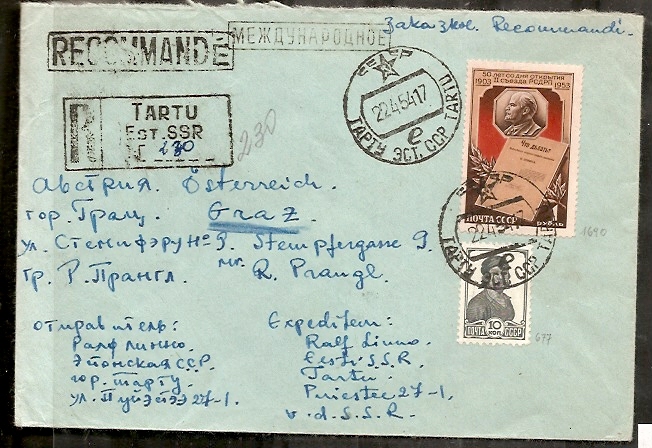 Заказное. Recommandi.
RECOMMANDÉ
МЕЖДУНАРОДНОЕ
TARTU
EST. SSR
230
230
СССР
22 4 54 17
е
ТАРТУ ЭСТ. ССР TARTU
50 ЛЕТ СО ДНЯ ОТКРЫТИЯ
1903 II СЪЕЗДА РСДРП 1953
Что делать?
ПОЧТА СССР 1 РУБЛЬ
1690
22 4 54 17
е
ТАРТУ ЭСТ. ССР TARTU
ПОЧТА 10 КОП. СССР
677
Австрия. Österreich.
гор. Грац. Graz.
ул. Стемпфэру № 9. Stempfergasse 9.
гр. Р. Прангл. Mr. R. Prangl.
отправитель: Expediteur:
Ралф Линно. Ralf Linno.
Эстонская ССР. Eesti S.S.R.
гор. Тарту. Tartu.
ул. Пуйэстээ 27-1. Puiestee 27-1.
U.d.S.S.R.